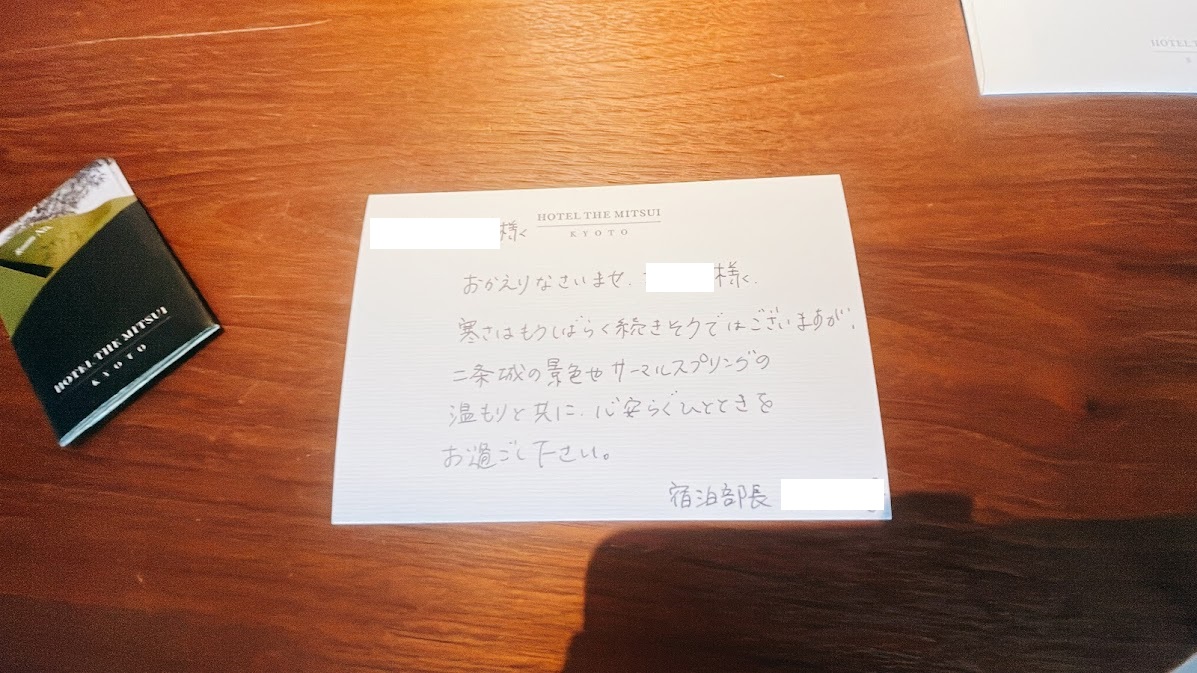 HOTEL THE MITSUI
KYOTO
様
おかえりなさいませ、様。
寒さはもうしばらく続きそうではございますが、
二条城の景色やサーマルスプリングの
温もりと共に、心安らぐひとときを
お過ごし下さい。
宿泊部長
HOTEL THE MITSUI
KYOTO
HOTEL